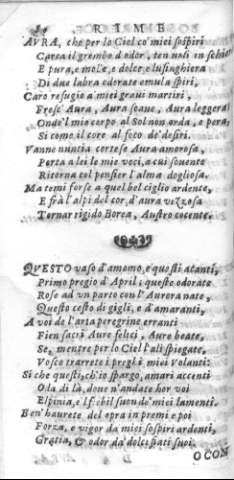 RIME
AVRA, che per lo Ciel co' miei sospiri
Carca il grembo d'odor, ten uoli in schiera
E pura, e molle, e dolce, e lusinghiera
Di due labra odorate emula spiri,
Caro refugio a miei graui martiri,
Fresc' Aura, Aura soaue, Aura leggera
Onde'l mio corpo al Sol non arda, e pera,
Si come il core al foco de' desiri.
Vanne nuntia cortese Aura amorosa,
Porta a lei le mie voci, a cui souente
Ritorna col pensier l'alma dogliosa.
Ma temi forse a quel bel ciglio ardente,
E frà l'alpi del cor, d'aura vezzosa
Tornar rigido Borea, Austro cocente.
QVESTO vaso d'amomo, e questi acanti,
Primo pregio d'April; queste odorate
Rose ad vn parto con l'Aurora nate,
Questo cesto di gigli, e d'amaranti,
A voi de l'aria peregrine erranti
Fien sacri Aure felici, Aure beate,
Se, mentre per lo Ciel l'ali spiegate,
Vosco trarrete i preghi miei volanti:
Si che questi, ch'io spargo, amari accenti
Oda di là, doue n'andate hor voi
Elpinia, e il de' miei lamenti.
Ben' haurete del opra in premi e poi
Forza, e vigor da miei sospiri ardenti,
Gratia, & odor da' dolci fiati suoi.
O CON